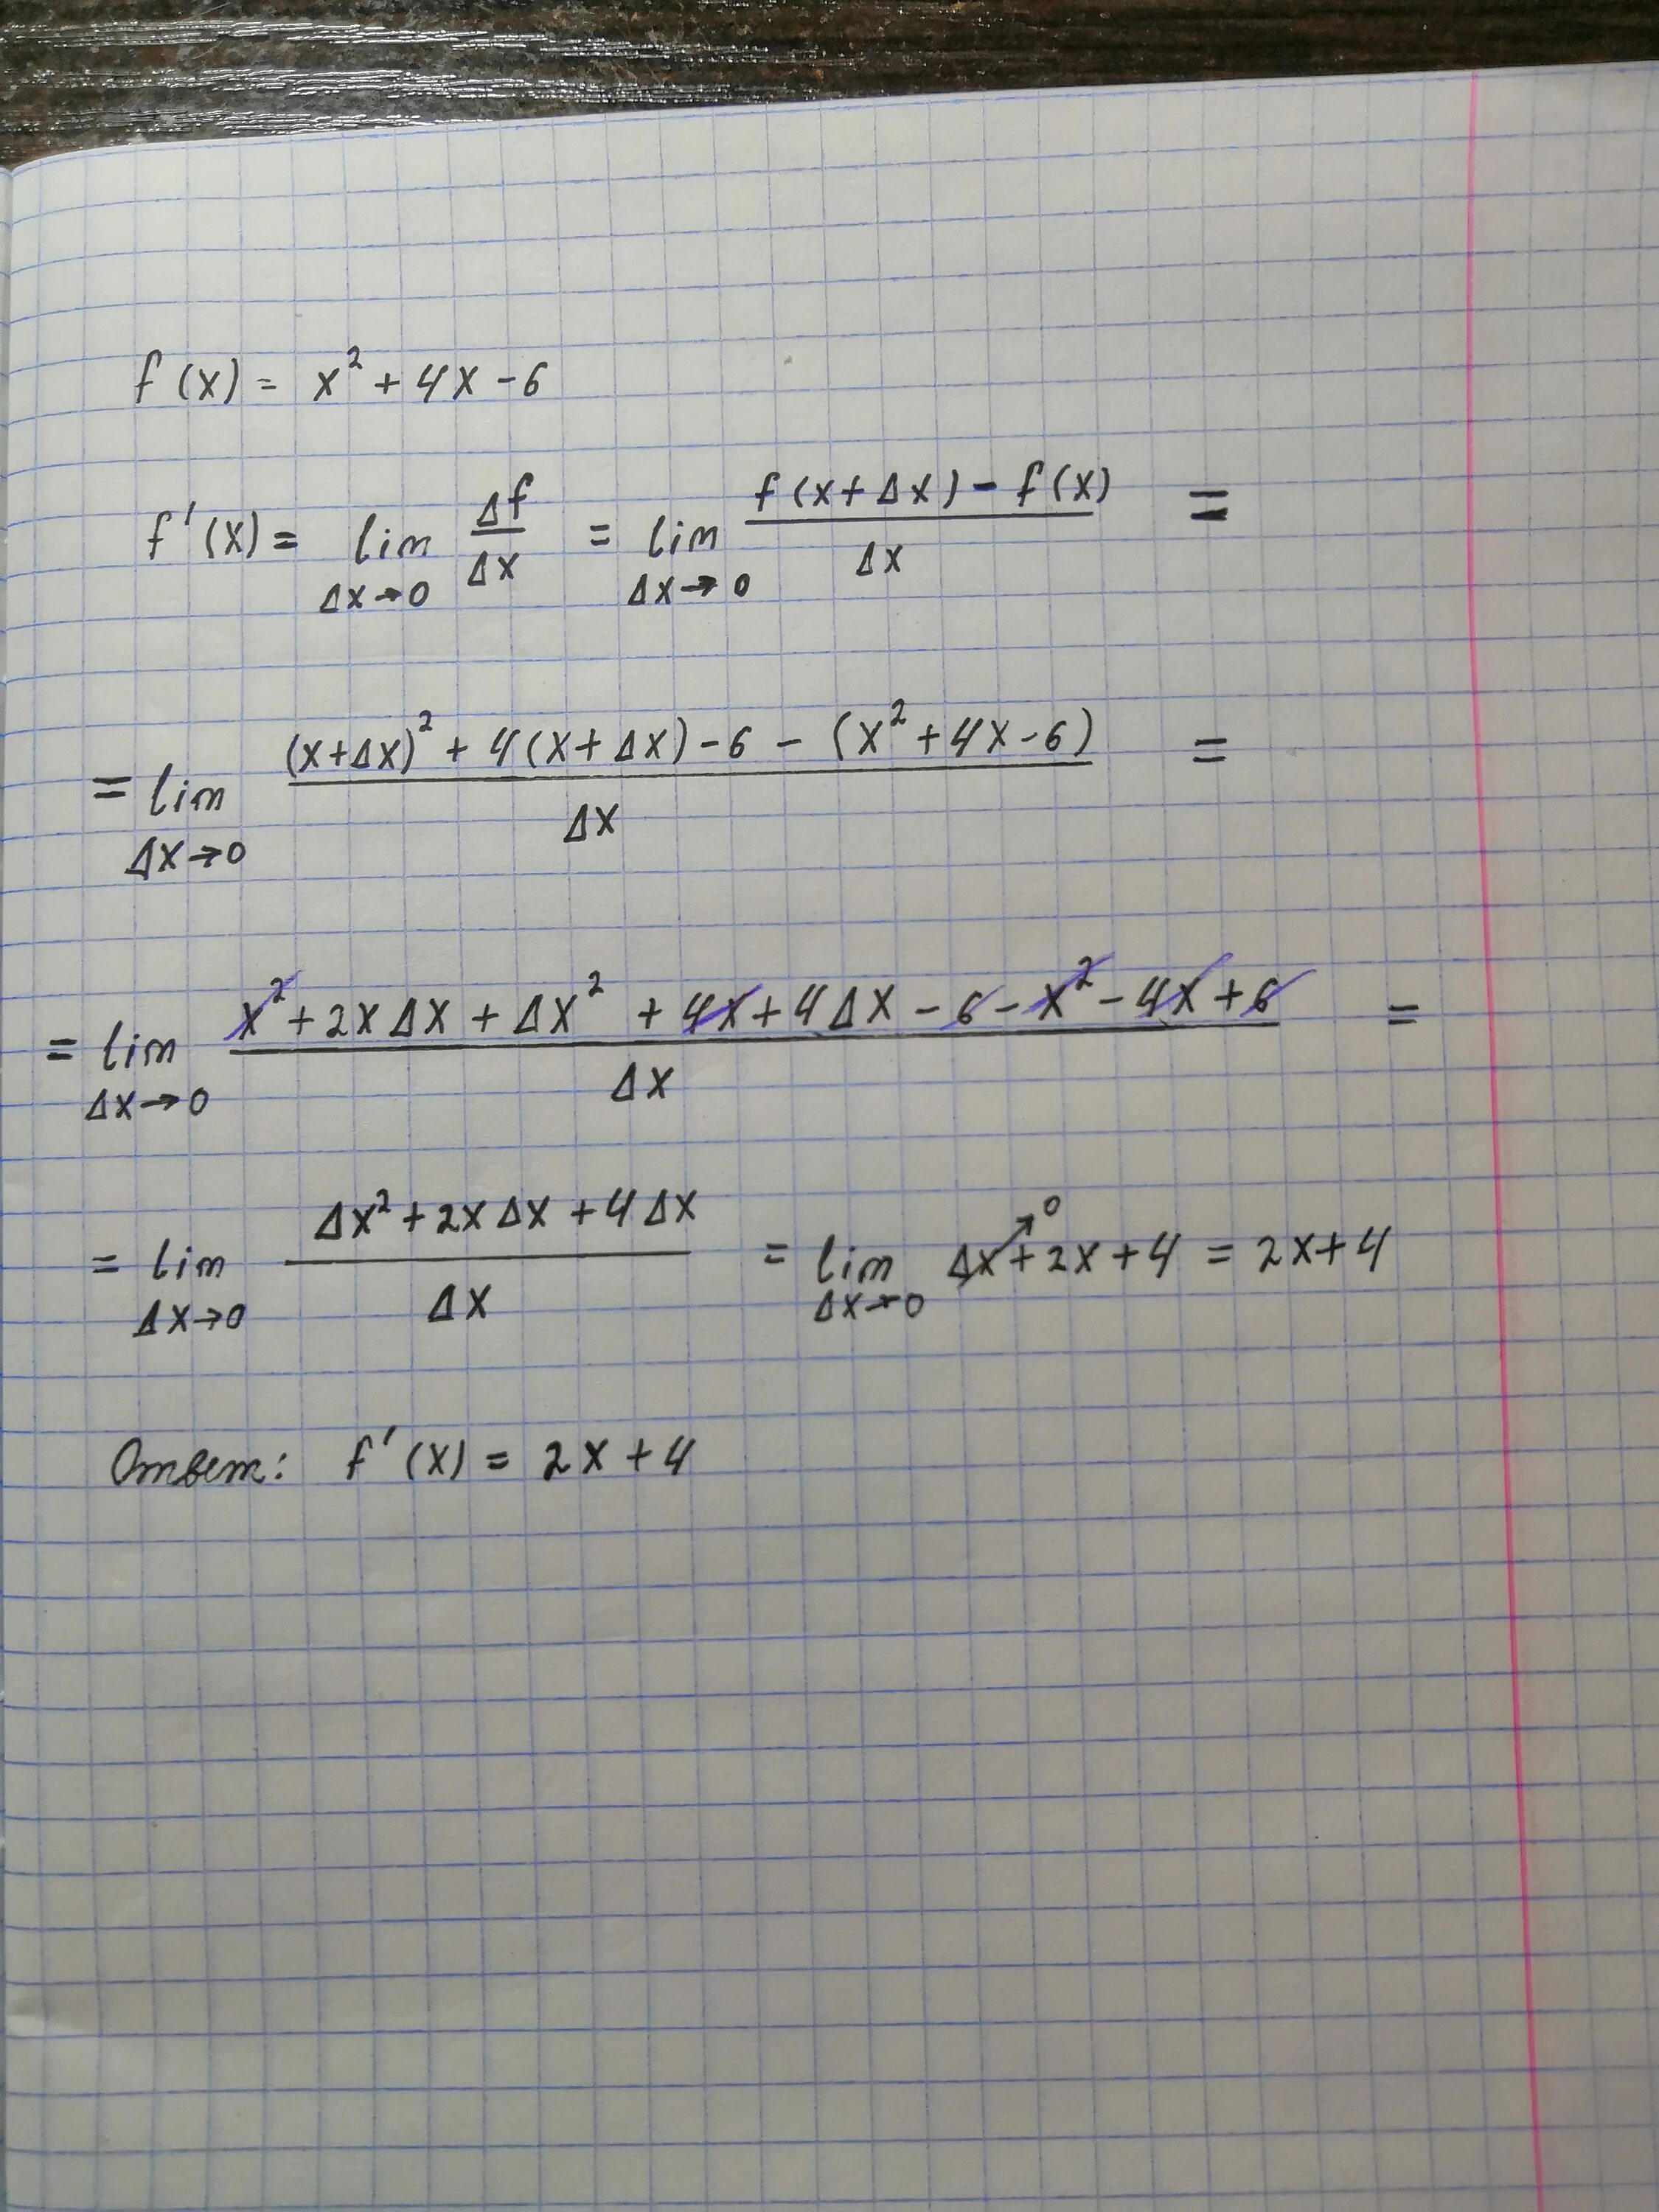 f(x) = x² + 4x - 6
f'(x) = lim Δx→0 Δf/Δx = lim Δx→0 (f(x+Δx) - f(x))/Δx =
= lim Δx→0 ((x+Δx)² + 4(x+Δx) - 6 - (x² + 4x - 6))/Δx =
= lim Δx→0 (x² + 2xΔx + Δx² + 4x + 4Δx - 6 - x² - 4x + 6)/Δx =
= lim Δx→0 (Δx² + 2xΔx + 4Δx)/Δx = lim Δx→0 Δx↗0 + 2x + 4 = 2x + 4
Ответ: f'(x) = 2x + 4